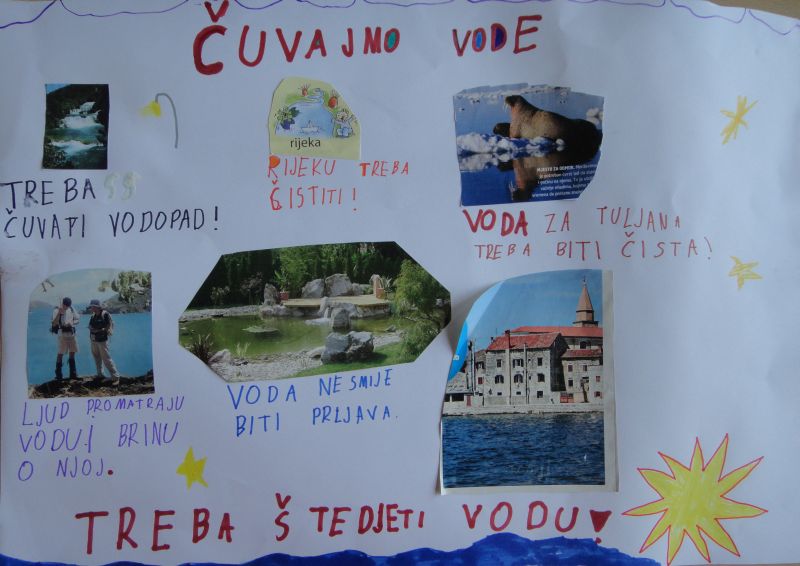 ČUVAJMO VODE
rijeka
RIJEKU TREBA
ČISTITI!
TREBA
ČUVATI VODOPAD!
MJESTO ZA ODMOR.
VODA ZA TULJANA
TREBA BITI ČISTA!
LJUD PROMATRAJU
VODU I BRINU
O NJOJ.
VODA NE SMIJE
BITI PRLJAVA.
TREBA ŠTEDJETI VODU!